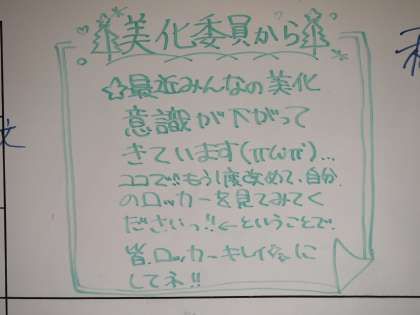 美化委員から
☆最近みんなの美化
意識が下がって
きています(πωπ)...
ココで!!もう1度改めて、自分
のロッカーを見てみてく
ださいっ!!←ということで、
皆、ロッカーキレイに
してネ!!